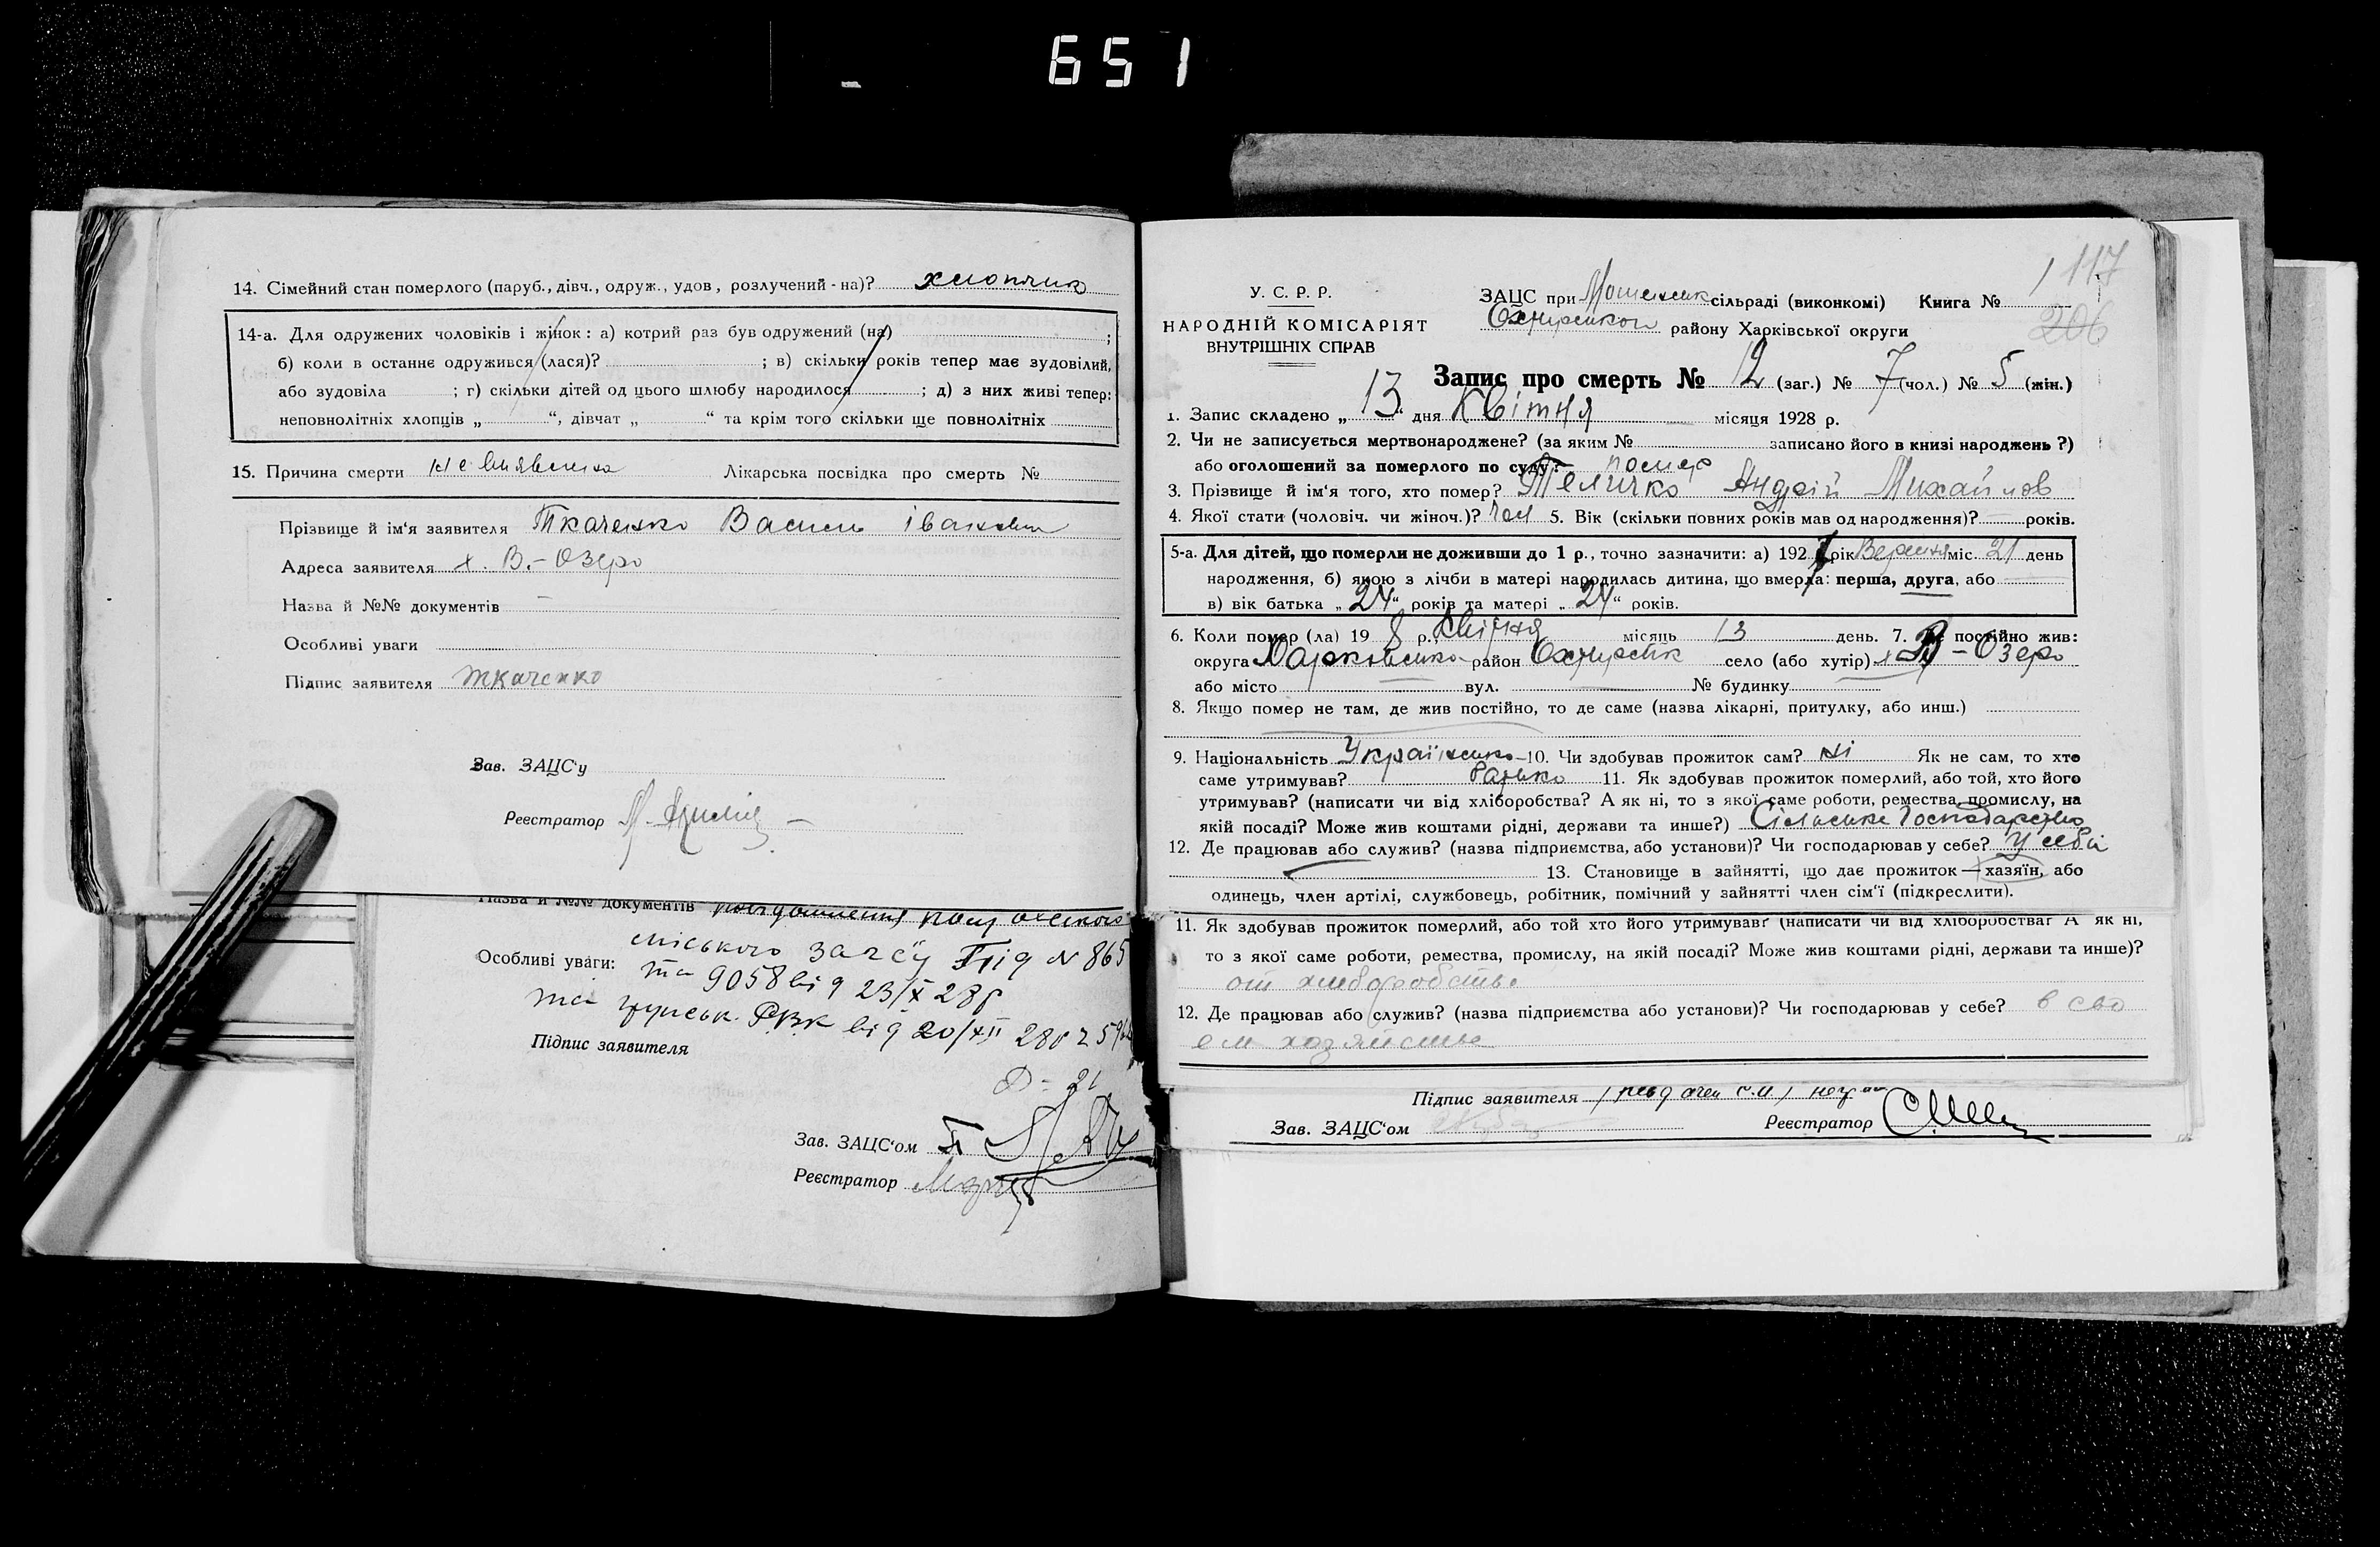 651
14. Сімейний стан померлого (паруб., дівч., одруж., удов, розлучений-на)? хлопчик
14-а. Для одружених чоловіків і жінок: а) котрий раз був одружений (на) ;
б) коли в останнє одружився (лася)? ; в) скільки років тепер має зудовілий,
або зудовіла ; г) скільки дітей од цього шлюбу народилося ; д) з них живі тепер:
неповнолітніх хлопців „ “, дівчат „ “ та крім того скільки ще повнолітніх
15. Причина смерти не виявлена Лікарська посвідка про смерть №
Прізвище й ім'я заявителя Ткаченко Василь Іванович
Адреса заявителя х. В.-Озеро
Назва й №№ документів —
Особливі уваги
Підпис заявителя Ткаченко
Зав. ЗАЦС'у
Реєстратор
Назва й №№ документів повідомлення
Особливі уваги: міського загсу під № 865
та 9058 від 23/X 28р
та РВК від 20/XII 28р
Підпис заявителя
Зав. ЗАЦС'ом
Реєстратор
117
206
У. С. Р. Р.
НАРОДНІЙ КОМІСАРІЯТ
ВНУТРІШНІХ СПРАВ
ЗАЦС при сільраді (виконкомі) Книга №
району Харківської округи
Запис про смерть № 12 (заг.) № 7 (чол.) № 5 (жін.)
1. Запис складено „ 13 “ дня Квітня місяця 1928 р.
2. Чи не записується мертвонароджене? (за яким № записано його в книзі народжень?)
або оголошений за померлого по суду? помер
3. Прізвище й ім'я того, хто помер? Теличко Андрій Михайлов
4. Якої стати (чоловіч. чи жіноч.)? чол 5. Вік (скільки повних років мав од народження)? — років.
5-а. Для дітей, що померли не доживши до 1 р., точно зазначити: а) 1927 рік Вересня міс. 21 день
народження, б) якою з лічби в матері народилась дитина, що вмерла: перша, друга, або
в) вік батька „ 24 “ років та матері „ 24 “ років.
6. Коли помер (ла) 19 8 р. Квітня місяць 13 день. 7. Де постійно жив:
округа Харківська район Охтирськ село (або хутір) х В-Озеро
або місто вул. — № будинку
8. Якщо помер не там, де жив постійно, то де саме (назва лікарні, притулку, або инш.)
9. Національність Українська 10. Чи здобував прожиток сам? ні Як не сам, то хто
саме утримував? батько 11. Як здобував прожиток померлий, або той, хто його
утримував? (написати чи від хліборобства? А як ні, то з якої саме роботи, ремества, промислу, на
якій посаді? Може жив коштами рідні, держави та инше?) Сільське Господарство
12. Де працював або служив? (назва підприємства, або установи)? Чи господарював у себе? У себе
13. Становище в зайнятті, що дає прожиток — хазяїн, або
одинець, член артілі, службовець, робітник, помічний у зайнятті член сім'ї (підкреслити).
11. Як здобував прожиток померлий, або той хто його утримував? (написати чи від хліборобства? А як ні,
то з якої саме роботи, ремества, промислу, на якій посаді? Може жив коштами рідні, держави та инше)?
от хлеборобства
12. Де працював або служив? (назва підприємства або установи)? Чи господарював у себе? в сво
ем хозяйстве
Підпис заявителя
Зав. ЗАЦС'ом Реєстратор